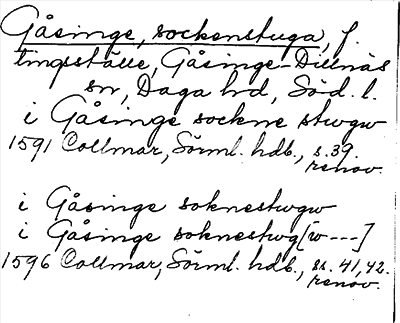 Gåsinge, sockenstuga, f.
tingsställe, Gåsinge-Dillnäs
sn, Daga hd, Söd. l.
i Gåsinge sockne stwgw
1591 Collmar, Sörml. hdb., s. 39.
renov.
i Gåsinge soknestwgw
i Gåsinge soknestwg[w---]
1596 Collmar, Sörml. hdb., ss. 41, 42.
renov.